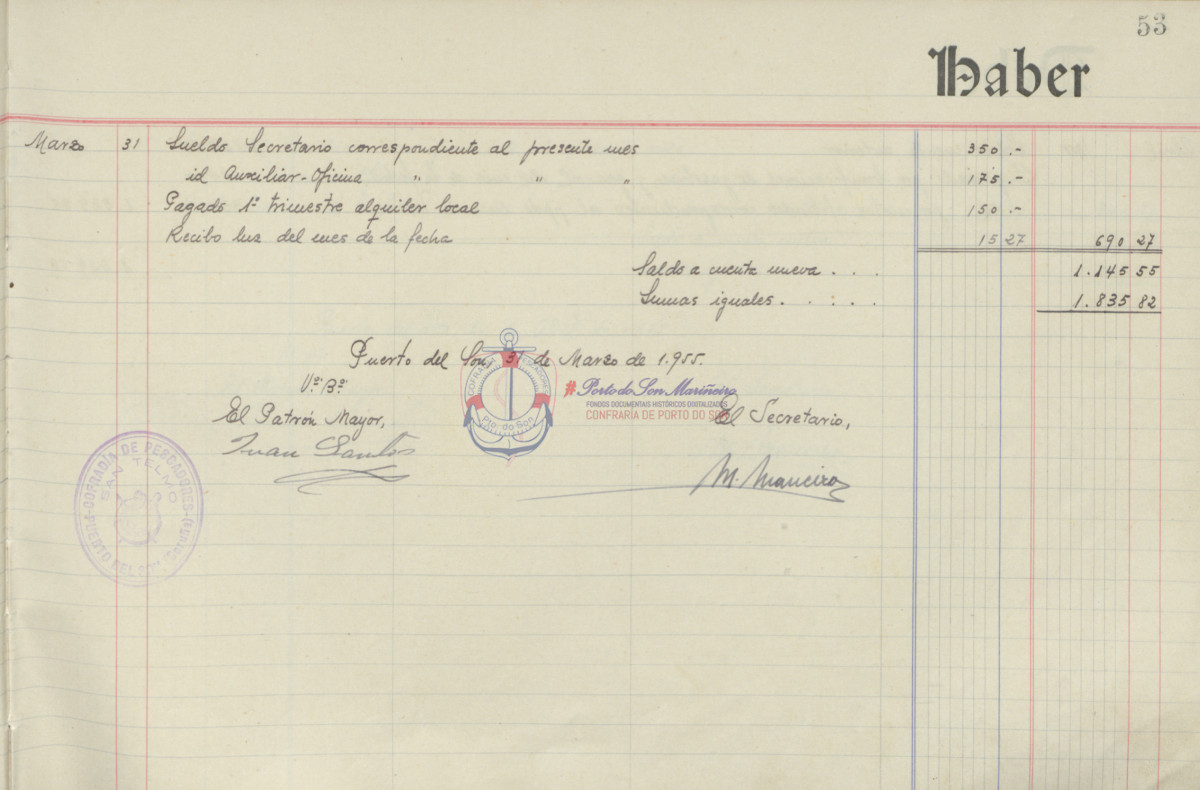 53
Haber
Marzo 31 Sueldo Secretario correspondiente al presente mes 350.-
id Auxiliar-Oficina " " " 175.-
Pagado 1º trimestre alquiler local 150.-
Recibo luz del mes de la fecha 15 27 690 27
Saldo a cuenta nueva . . . 1.145 55
Sumas iguales . . : . . 1.835 82
Puerto del Son, 31 de Marzo de 1.955.
Vº Bº
El Patrón Mayor,
El Secretario,
Juan Santos
M. Maneiro
COFRADÍA DE PESCADORES-PUERTO DEL SON (Coruña)
SAN TELMO
COFRADÍA PESCADORES
Pto. do Son
#Porto do Son Mariñeiro
FONDOS DOCUMENTAIS HISTÓRICOS DIXITALIZADOS
CONFRARÍA DE PORTO DO SON